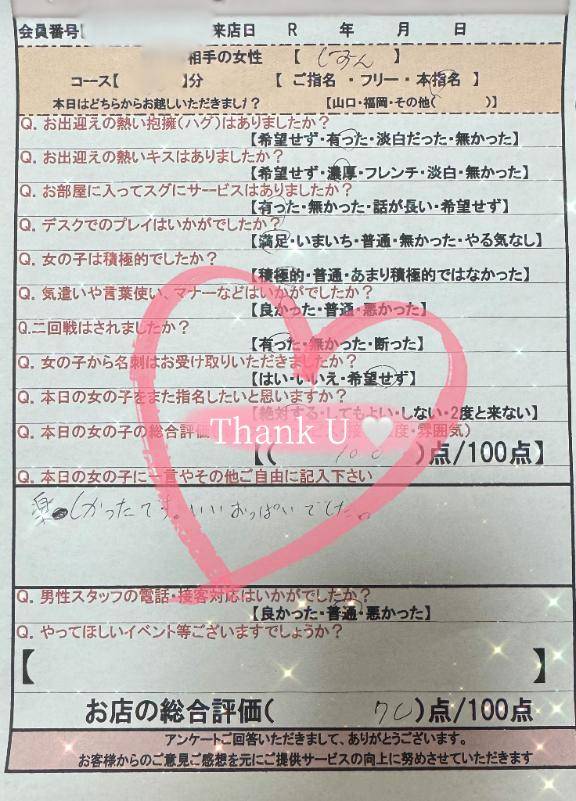 会員番号【 来店日 R 年 月 日
相手の女性 【 しおん 】
コース【 】分 【 ご指名・フリー・本指名 】
本日はどちらからお越しいただきました? 【山口・福岡・その他( )】
Q. お出迎えの熱い抱擁(ハグ)はありましたか?
【希望せず・有った・淡白だった・無かった】
Q. お出迎えの熱いキスはありましたか?
【希望せず・濃厚・フレンチ・淡白・無かった】
Q. お部屋に入ってスグにサービスはありましたか?
【有った・無かった・話が長い・希望せず】
Q. デスクでのプレイはいかがでしたか?
【満足・いまいち・普通・無かった・やる気なし】
Q. 女の子は積極的でしたか?
【積極的・普通・あまり積極的ではなかった】
Q. 気遣いや言葉使い、マナーなどはいかがでしたか?
【良かった・普通・悪かった】
Q.二回戦はされましたか?
【有った・無かった・断った】
Q. 女の子から名刺はお受け取りいただきましたか?
【はい・いいえ・希望せず】
Q. 本日の女の子をまた指名したいと思いますか?
【絶対する・してもよい・しない・2度と来ない】
Q. 本日の女の子の総合評価 度・雰囲気)
Thank U 🤍
【( 100 )点/100点】
Q. 本日の女の子に一言やその他ご自由に記入下さい
楽しかったです。いいおっぱいでした。
Q. 男性スタッフの電話・接客対応はいかがでしたか?
【良かった・普通・悪かった】
Q. やってほしいイベント等ございますでしょうか?
【 】
お店の総合評価( 70 )点/100点
アンケートご回答いただきまして、ありがとうございます。
お客様からのご意見ご感想を元にご提供サービスの向上に努めさせていただきます